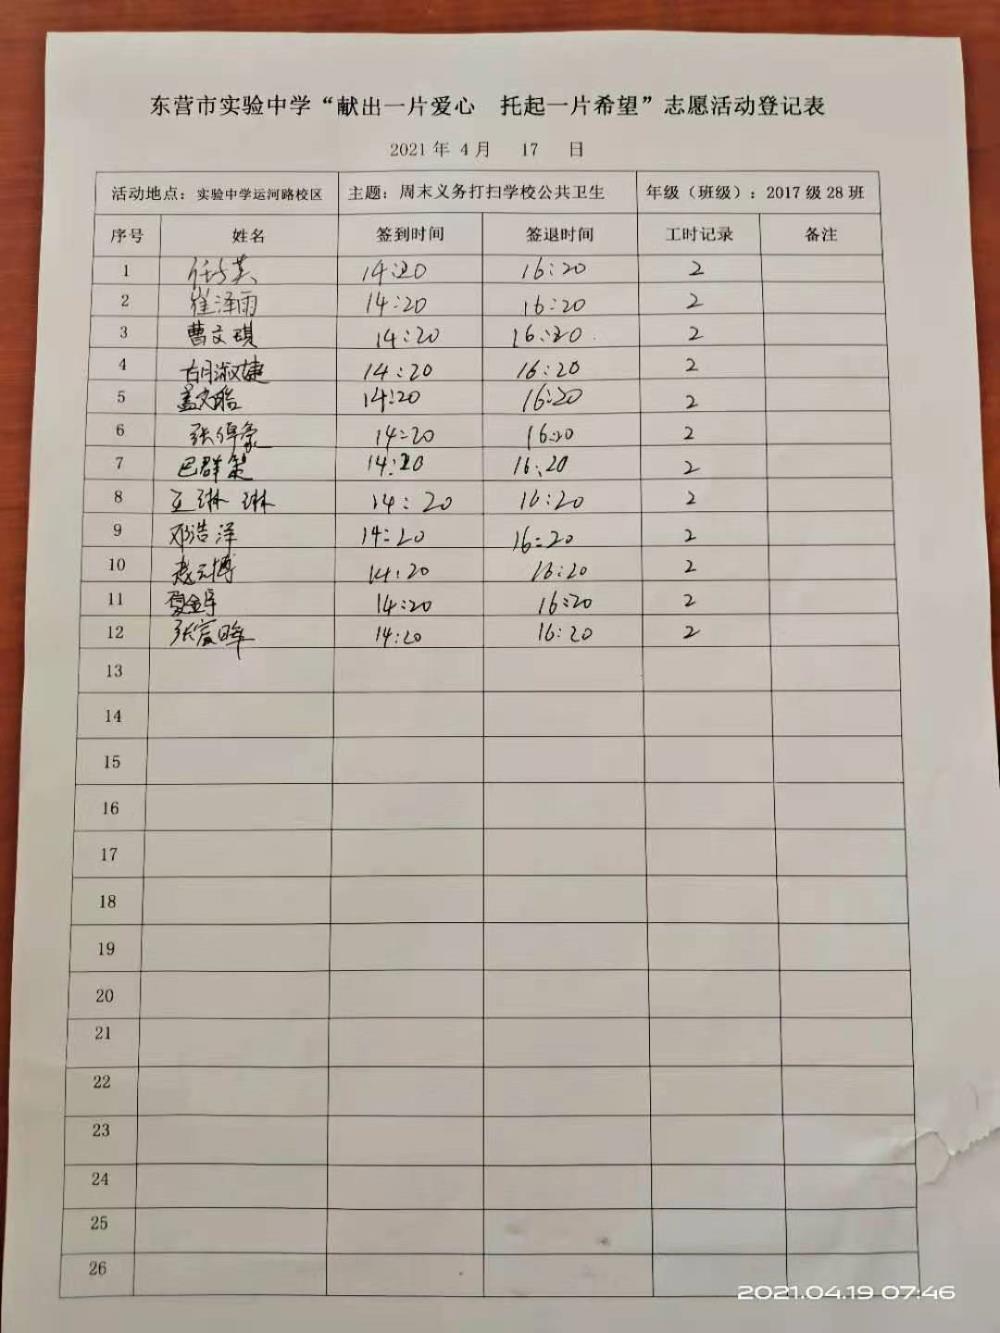 东营市实验中学“献出一片爱心 托起一片希望”志愿活动登记表
2021 年 4 月 17 日
活动地点：实验中学运河路校区 主题：周末义务打扫学校公共卫生 年级（班级）：2017 级 28 班
序号 姓名 签到时间 签退时间 工时记录 备注
1 14:20 16:20 2
2 崔泽雨 14:20 16:20 2
3 曹文琪 14:20 16:20 2
4 胡淑婕 14:20 16:20 2
5 14:20 16:20 2
6 张倬豪 14:20 16:20 2
7 巴群策 14:20 16:20 2
8 王琳琳 14:20 16:20 2
9 邓浩泽 14:20 16:20 2
10 赵云博 14:20 16:20 2
11 14:20 16:20 2
12 张宸晖 14:20 16:20 2
13
14
15
16
17
18
19
20
21
22
23
24
25
26
2021.04.19 07:46